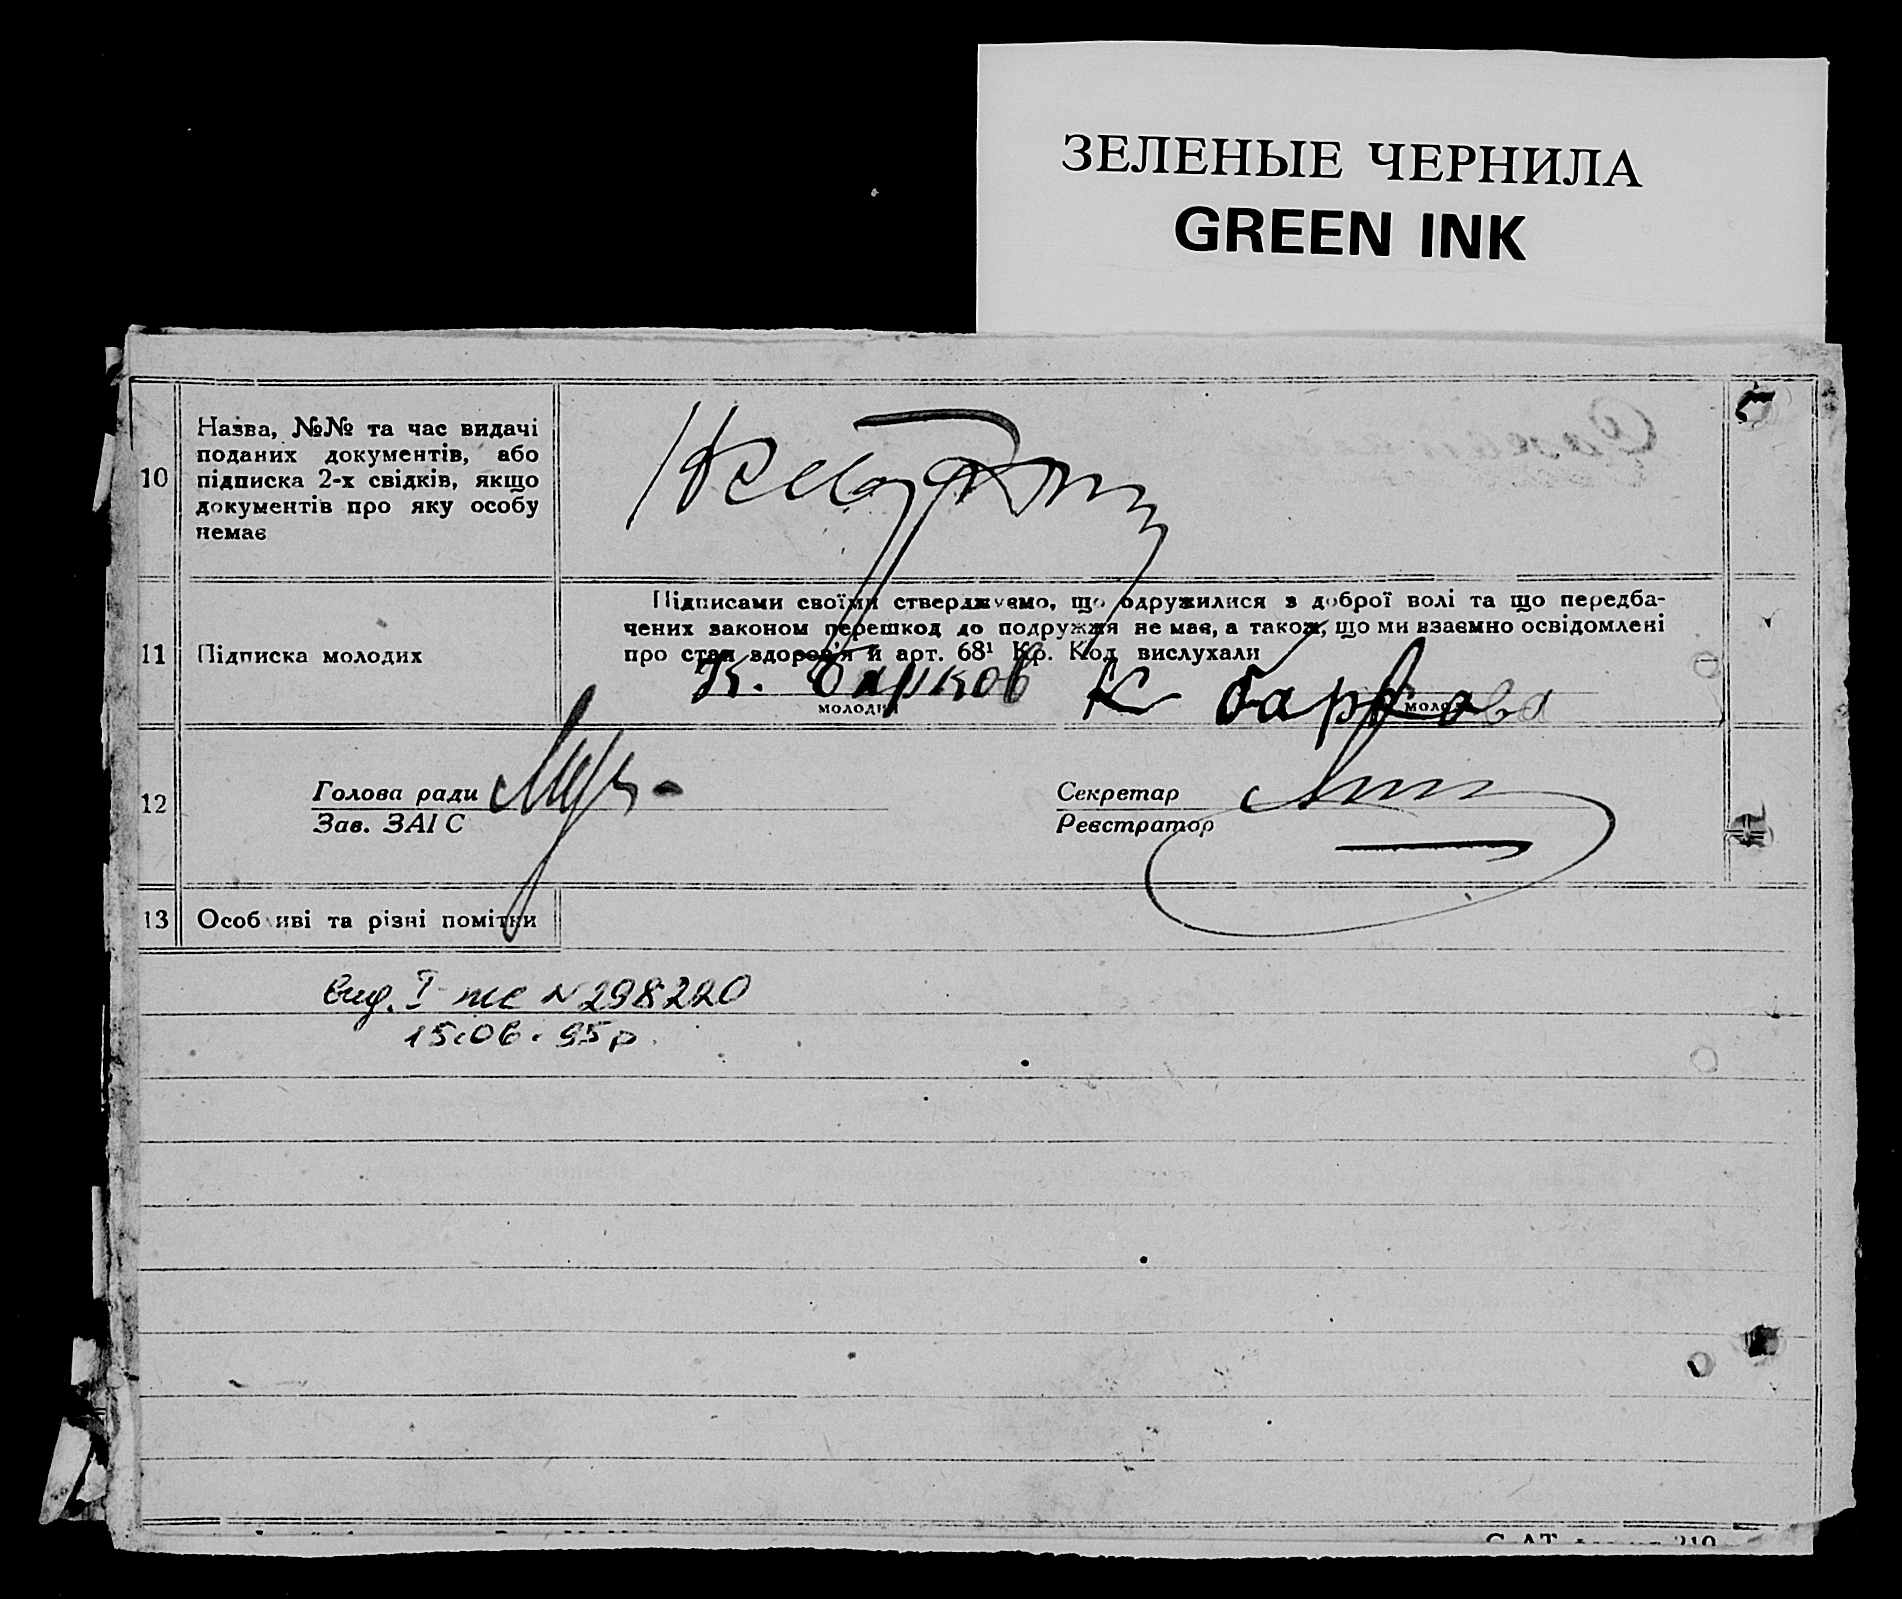 ЗЕЛЕНЫЕ ЧЕРНИЛА
GREEN INK
10
Назва, №№ та час видачі
поданих документів, або
підписка 2-х свідків, якщо
документів про яку особу
немає
11
Підписка молодих
Підписами своїми стверджуємо, що одружилися з доброї волі та що передба-
чених законом перешкод до подружжя не має, а також, що ми взаємно освідомлені
про стан здоров'я й арт. 68¹ Кр. Код вислухали
К. Барков К баркова
молодий
12
Голова ради
Зав. ЗАІС
Секретар
Реєстратор
13
Особливі та різні помітки
вид. І-жс N 298220
15.06.95р.